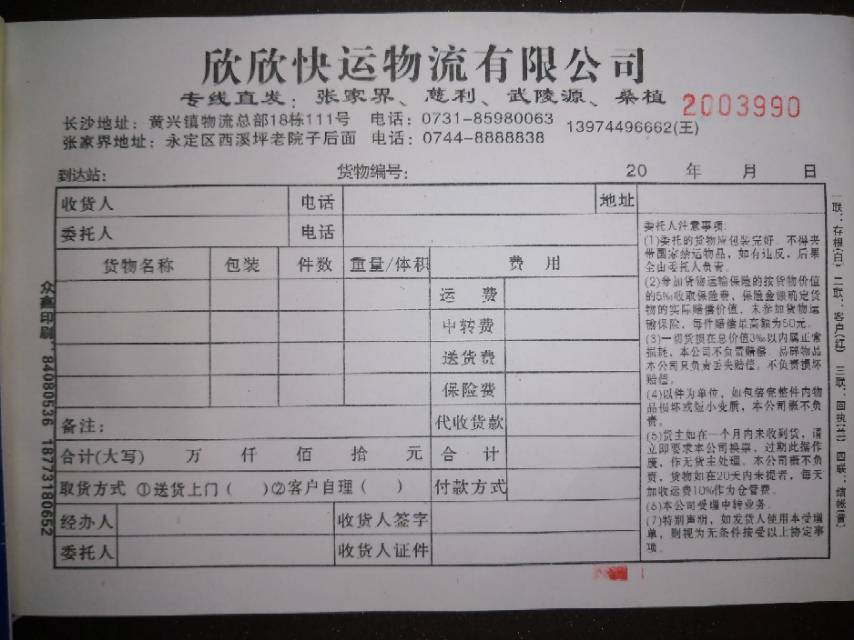 欣欣快运物流有限公司
专线直发：张家界、慈利、武陵源、桑植
2003990
长沙地址：黄兴镇物流总部18栋111号 电话：0731-85980063
13974496662(王)
张家界地址：永定区西溪坪老院子后面 电话：0744-8888838
到达站： 货物编号： 20 年 月 日
收货人 电话 地址
委托人 电话
货物名称 包装 件数 重量/体积 费用
运费
中转费
送货费
保险费
备注： 代收货款
合计(大写) 万 仟 佰 拾 元 合计
取货方式 ①送货上门( )②客户自理( ) 付款方式
经办人 收货人签字
委托人 收货人证件
委托人注意事项:
(1)委托的货物应包装完好，不得夹
带国家禁运物品，如有违反，后果
全由委托人负责。
(2)参加货物运输保险的按货物价值
的5‰收取保险费，保险金额确定货
物的实际赔偿价值，未参加货物运
输保险，每件赔偿最高额为50元。
(3)一切货损在总价值3‰以内属正常
损耗，本公司不负责赔偿，易碎物品
本公司只负责丢失赔偿，不负责损坏
赔偿。
(4)以件为单位，如包装完整件内物
品损坏或短小变质，本公司概不负
责。
(5)货主如在一个月内未收到货，请
立即要求本公司换票，过期此据作
废，作无货主处理，本公司概不负
责，货物如在20天内未提者，每天
加收运费10%作为仓管费。
(6)本公司受理中转业务。
(7)特别声明，如发货人使用本受理
单，则视为无条件接受以上协定事
项。
一联：存根(白) 二联：客户(红) 三联：回执(兰) 四联：结帐(黄)
众鑫印刷：84080536 18773180652